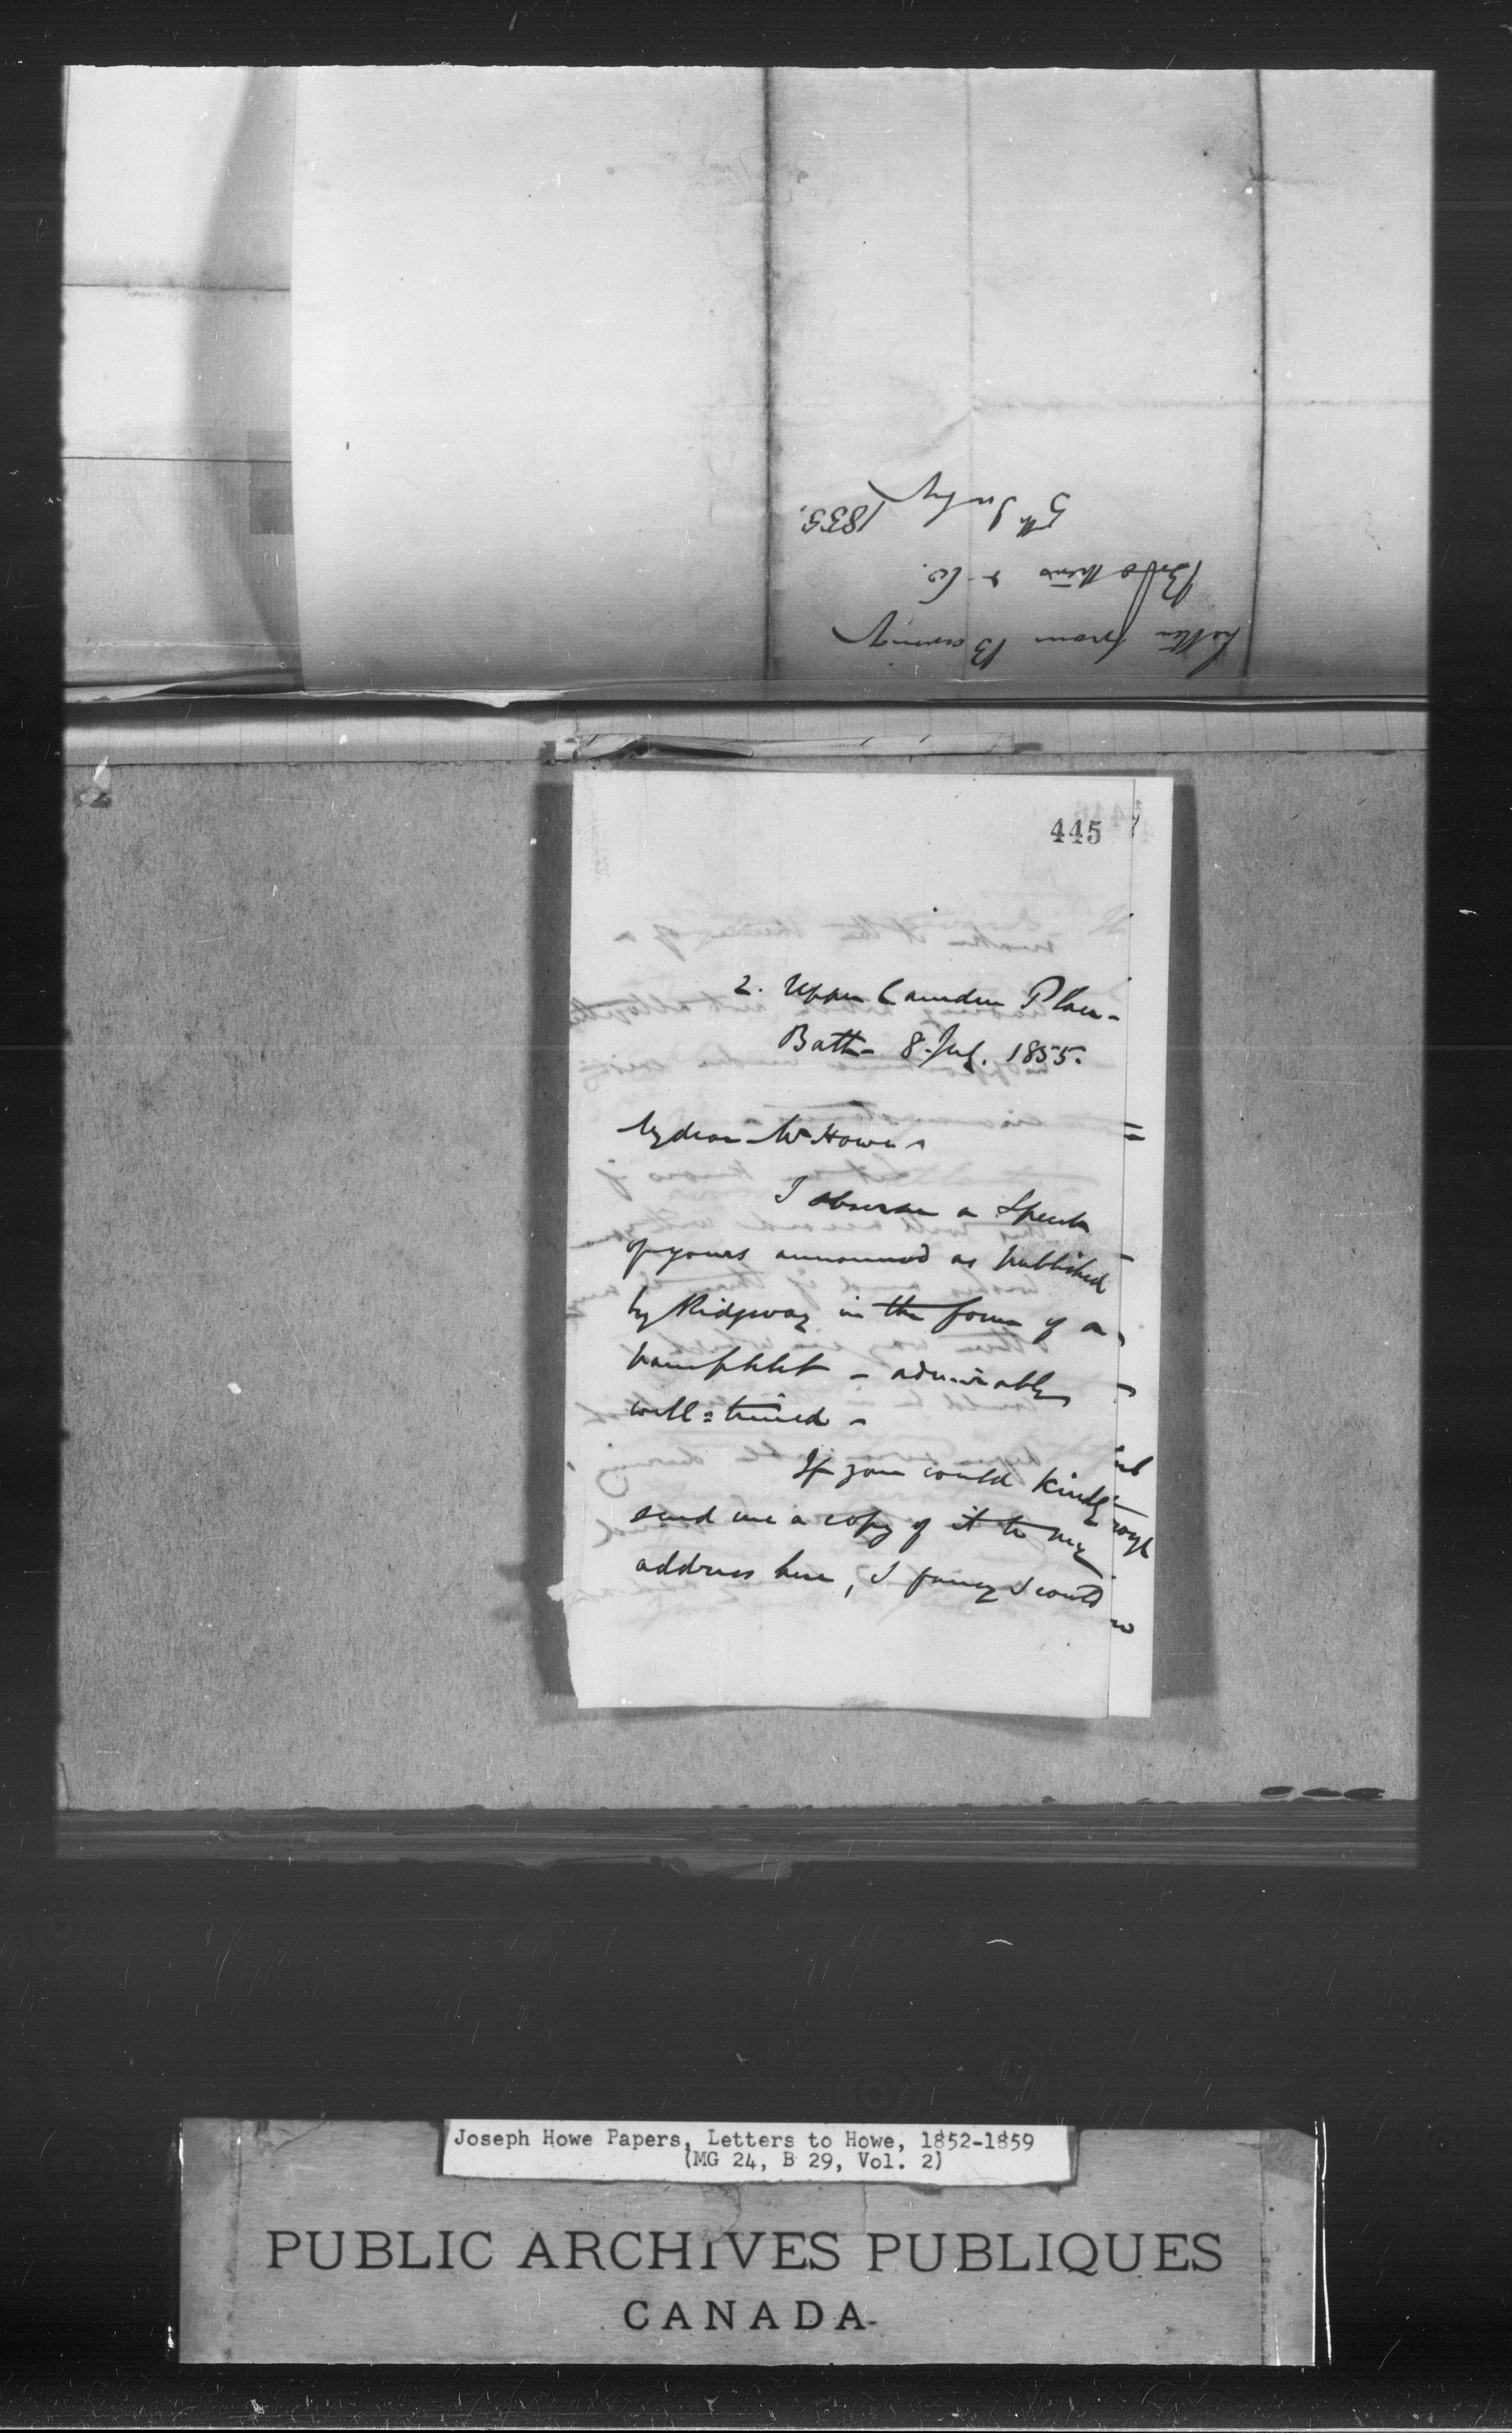 Letter from Baring
Brothers & Co.
5th July 1855.
445
2. Upper Camden Place -
Bath - 8 July. 1855.
My dear Mr Howe -
I observe a Speech
of yours announced as published
by Ridgway in the form of a
pamphlet - admirably
well=timed -
If you could kindly
send me a copy of it to my
address here, I fancy I could
Joseph Howe Papers, Letters to Howe, 1852-1859
(MG 24, B 29, Vol. 2)
PUBLIC ARCHIVES PUBLIQUES
CANADA